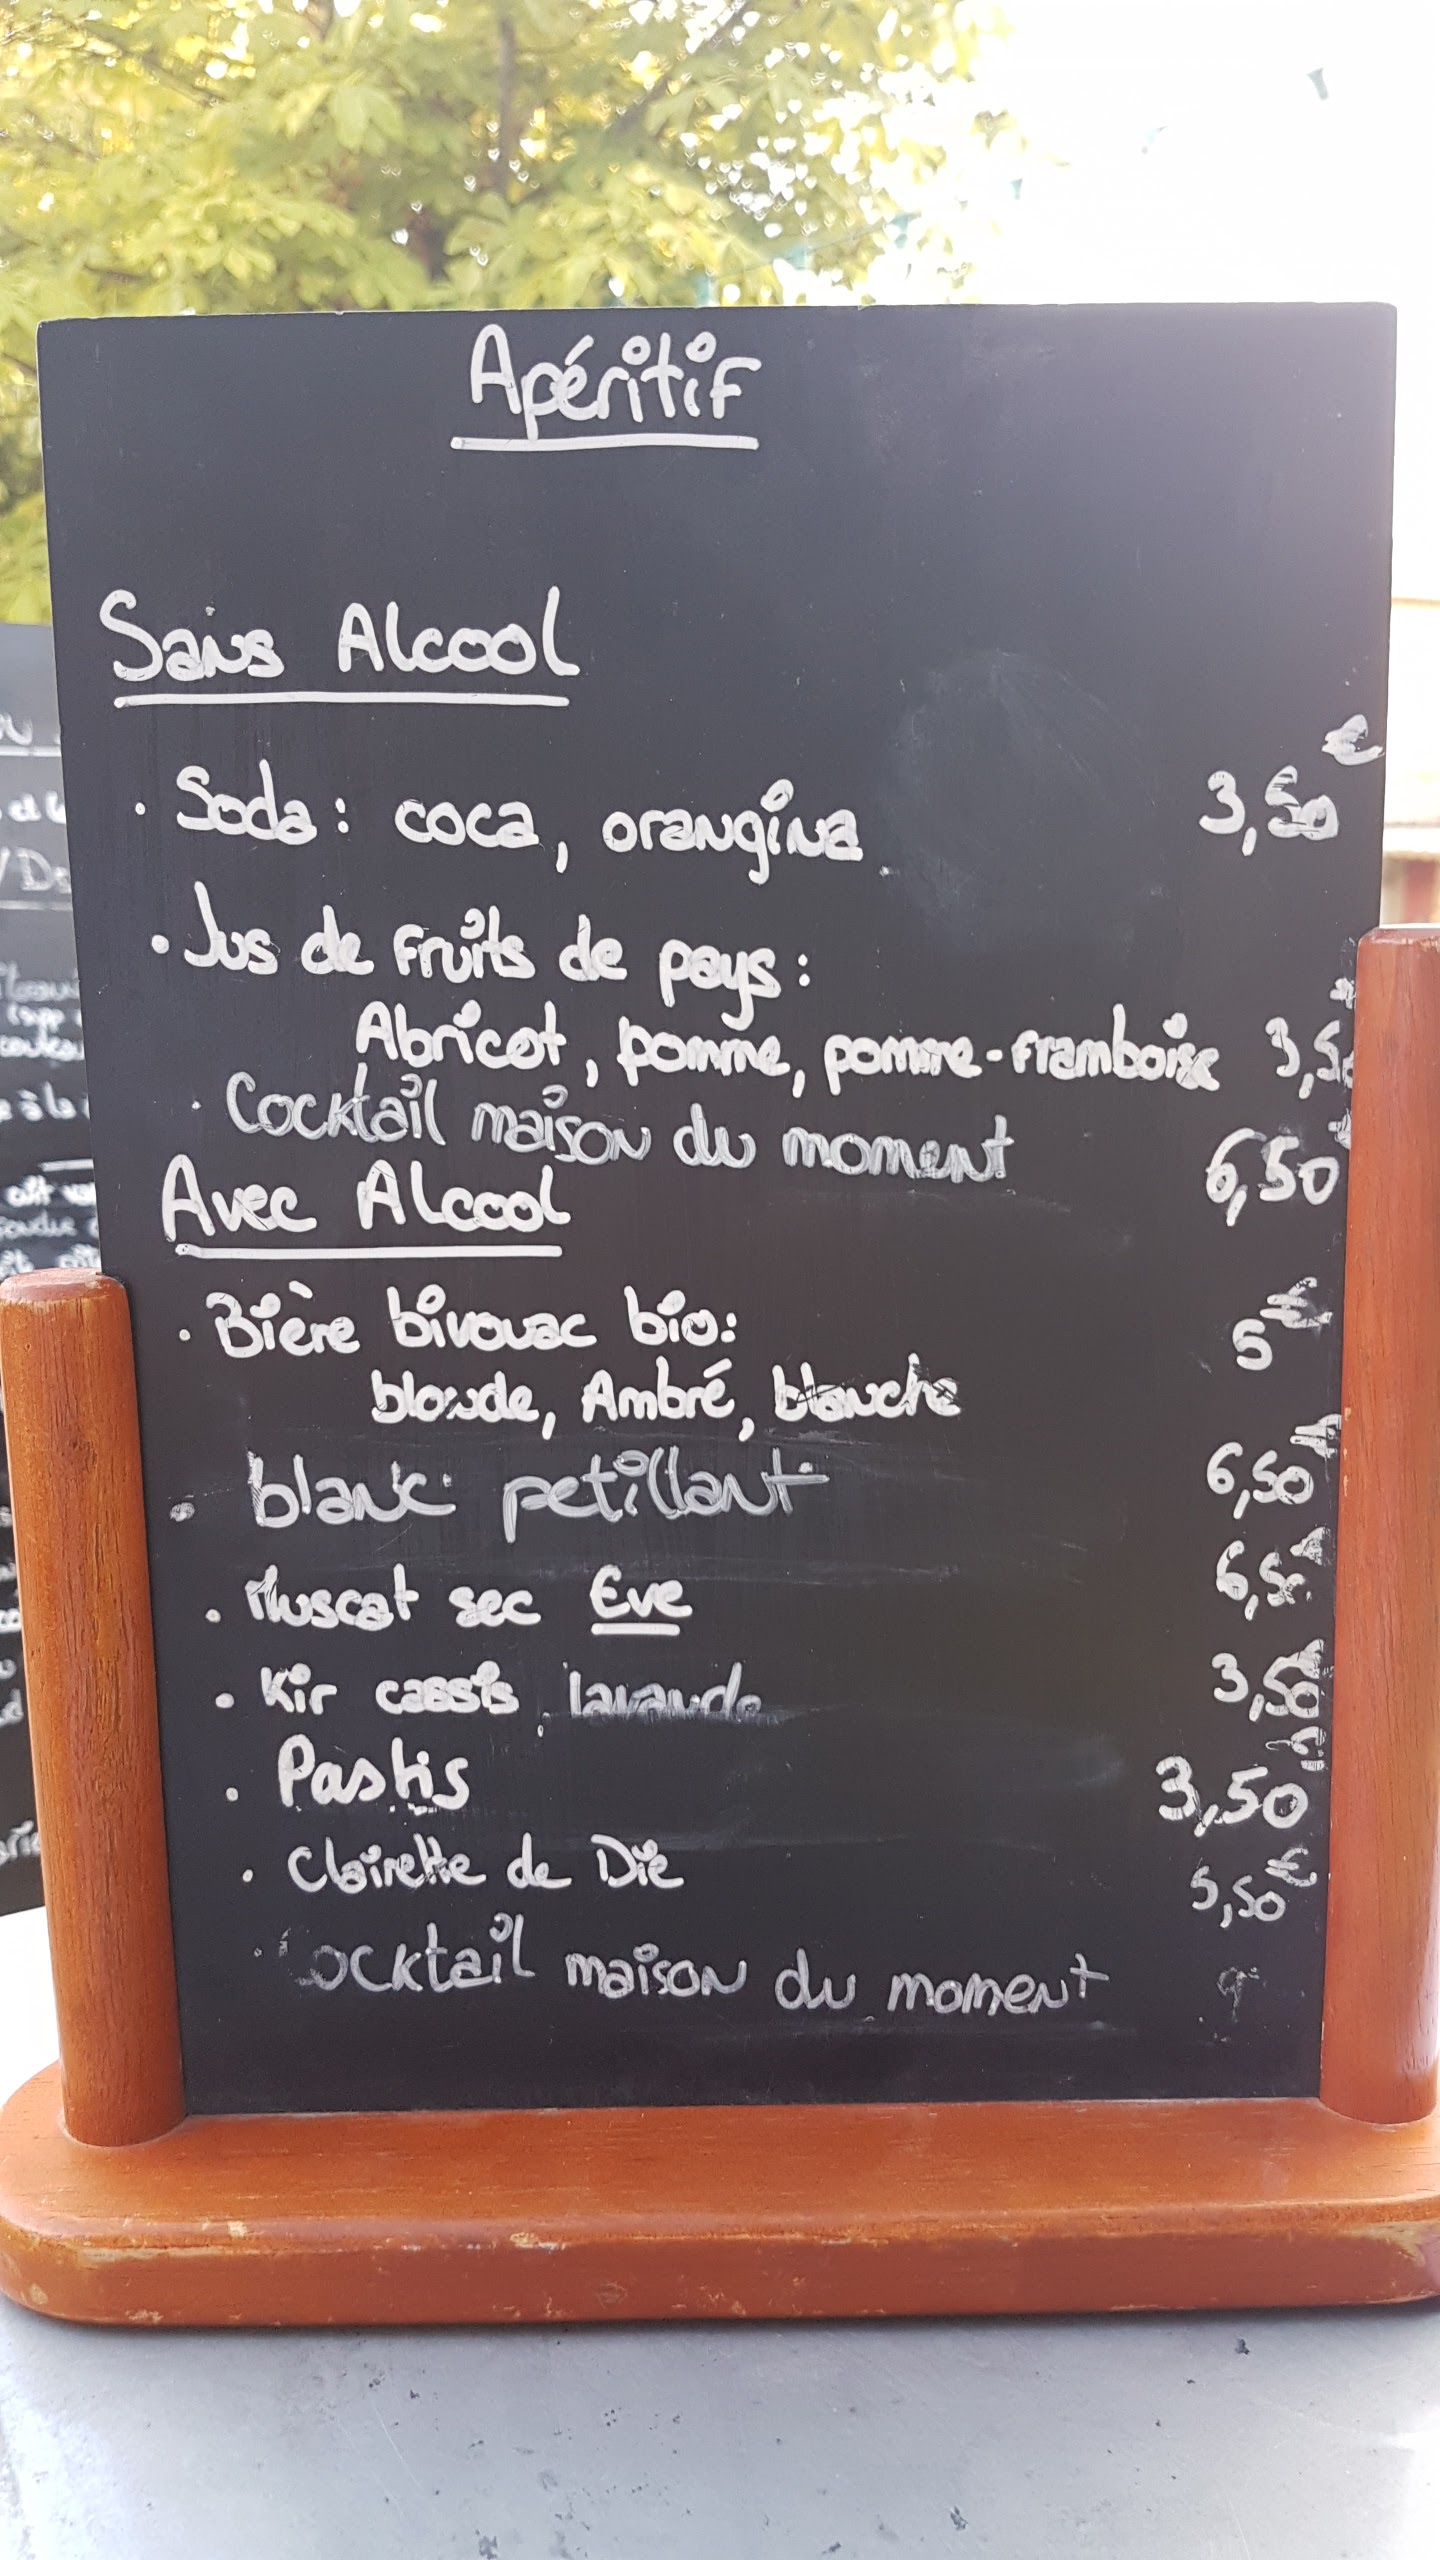 Apéritif
Sans Alcool
€
• Soda : coca, orangina 3,50
• Jus de fruits de pays :
Abricot, pomme, pomme-framboise 3,50
• Cocktail maison du moment 6,50
Avec Alcool
• Bière bivouac bio: 5€
blonde, Ambré, blanche
• blanc petillant 6,50
• Muscat sec Eve 6,50
• Kir cassis, lavande 3,50
• Pastis 3,50
• Clairette de Die 5,50€
• Cocktail maison du moment 9